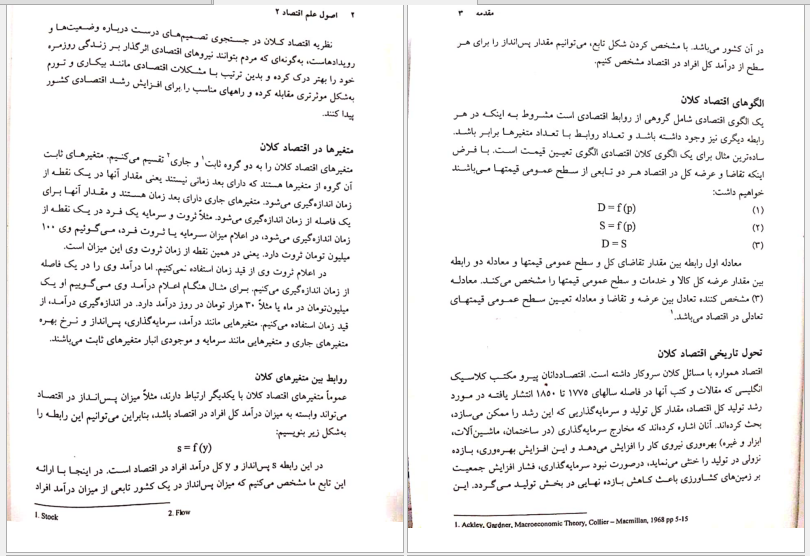 ۲ اصول علم اقتصاد ۲
نظریه اقتصاد کلان در جستجوی تصمیم‌های درست درباره وضعیت‌ها و
رویدادهاست، به‌گونه‌ای که مردم بتوانند نیروهای اقتصادی اثرگذار بر زندگی روزمره
خود را بهتر درک کرده و بدین ترتیب با مشکلات اقتصادی مانند بیکاری و تورم
به‌شکل موثرتری مقابله کرده و راههای مناسب را برای افزایش رشد اقتصادی کشور
پیدا کنند.
متغیرها در اقتصاد کلان
متغیرهای اقتصاد کلان را به دو گروه ثابت۱ و جاری۲ تقسیم می‌کنیم. متغیرهای ثابت
آن گروه از متغیرها هستند که دارای بعد زمانی نیستند یعنی مقدار آنها در یک نقطه از
زمان اندازه‌گیری می‌شود. متغیرهای جاری دارای بعد زمان هستند و مقدار آنها برای
یک فاصله از زمان اندازه‌گیری می‌شود. مثلاً ثروت و سرمایه یک فرد در یک نقطه از
زمان اندازه‌گیری می‌شود، در اعلام میزان سرمایه یا ثروت فرد، می‌گوئیم وی ۱۰۰
میلیون تومان ثروت دارد. یعنی در همین نقطه از زمان ثروت وی این میزان است.
در اعلام ثروت وی از قید زمان استفاده نمی‌کنیم. اما درآمد وی را در یک فاصله
از زمان اندازه‌گیری می‌کنیم. برای مثال هنگام اعلام درآمد وی می‌گوییم او یک
میلیون‌تومان در ماه یا مثلاً ۳۰ هزار تومان در روز درآمد دارد. در اندازه‌گیری درآمد، از
قید زمان استفاده می‌کنیم. متغیرهایی مانند درآمد، سرمایه‌گذاری، پس‌انداز و نرخ بهره
متغیرهای جاری و متغیرهایی مانند سرمایه و موجودی انبار متغیرهای ثابت می‌باشند.
روابط بین متغیرهای کلان
عموماً متغیرهای اقتصاد کلان با یکدیگر ارتباط دارند، مثلاً میزان پس‌انداز در اقتصاد
می‌تواند وابسته به میزان درآمد کل افراد در اقتصاد باشد، بنابراین می‌توانیم این رابطه را
به‌شکل زیر بنویسیم:
s = f (y)
در این رابطه s پس‌انداز و y کل درآمد افراد در اقتصاد است. در اینجا با ارائه
این تابع ما مشخص می‌کنیم که میزان پس‌انداز در یک کشور تابعی از میزان درآمد افراد
1. Stock 2. Flow
مقدمه ۳
در آن کشور می‌باشد. با مشخص کردن شکل تابع، می‌توانیم مقدار پس‌انداز را برای هر
سطح از درآمد کل افراد در اقتصاد مشخص کنیم.
الگوهای اقتصاد کلان
یک الگوی اقتصادی شامل گروهی از روابط اقتصادی است مشروط به اینکه در هر
رابطه دیگری نیز وجود داشته باشد و تعداد روابط با تعداد متغیرها برابر باشد.
ساده‌ترین مثال برای یک الگوی کلان اقتصادی الگوی تعیین قیمت است. با فرض
اینکه تقاضا و عرضه کل در اقتصاد هر دو تابعی از سطح عمومی قیمتها می‌باشند
خواهیم داشت:
(۱) D = f (p)
(۲) S = f (p)
(۳) D = S
معادله اول رابطه بین مقدار تقاضای کل و سطح عمومی قیمتها و معادله دو رابطه
بین مقدار عرضه کل کالا و خدمات و سطح عمومی قیمتها را مشخص می‌کند. معادله
(۳) مشخص کننده تعادل بین عرضه و تقاضا و معادله تعیین سطح عمومی قیمتهای
تعادلی در اقتصاد می‌باشد.۱
تحول تاریخی اقتصاد کلان
اقتصاد همواره با مسائل کلان سروکار داشته است. اقتصاددانان پیرو مکتب کلاسیک
انگلیسی که مقالات و کتب آنها در فاصله سالهای ۱۷۷۵ تا ۱۸۵۰ انتشار یافته در مورد
رشد تولید کل اقتصاد، مقدار کل تولید و سرمایه‌گذاریی که این رشد را ممکن می‌سازد،
بحث کرده‌اند. آنان اشاره کرده‌اند که مخارج سرمایه‌گذاری (در ساختمان، ماشین‌آلات،
ابزار و غیره) بهره‌وری نیروی کار را افزایش می‌دهد و این افزایش بهره‌وری، بازده
نزولی در تولید را خنثی می‌نماید، درصورت نبود سرمایه‌گذاری، فشار افزایش جمعیت
بر زمین‌های کشاورزی باعث کاهش بازده نهایی در بخش تولید می‌گردد. این
1. Ackley, Gardner, Macroeconomic Theory, Collier – Macmillan, 1968 pp 5-15